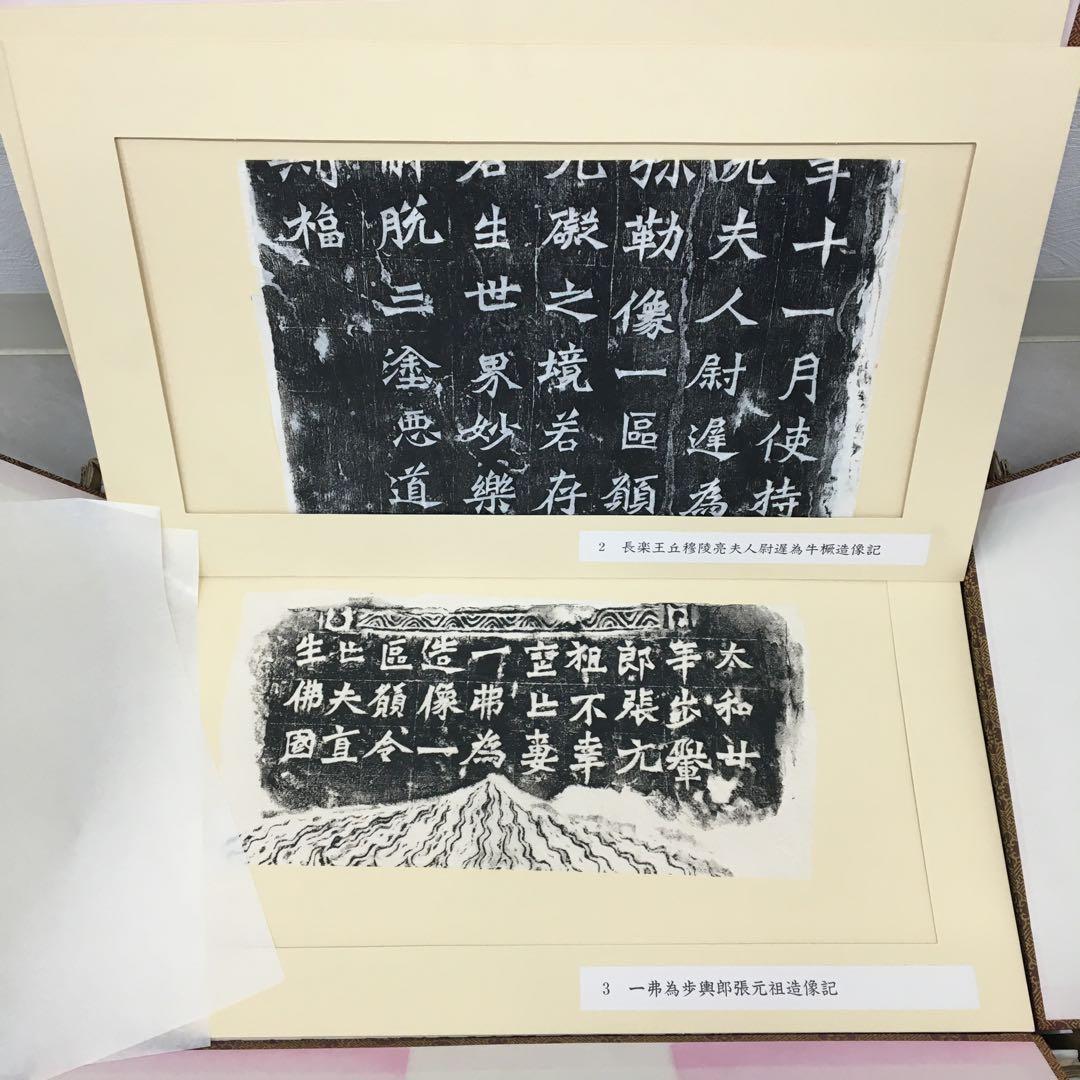 年十一月使持
亮夫人尉遲為
弥勒像一區願
无礙之境若存
若生世界妙樂
解脫三塗惡道
斯福
2 長楽王丘穆陵亮夫人尉遲為牛橛造像記
太和廿
年步轝
郎張元
祖不幸
喪亡妻
一弗為
造像一
區願令
亡夫直
生佛國
3 一弗為歩輿郎張元祖造像記